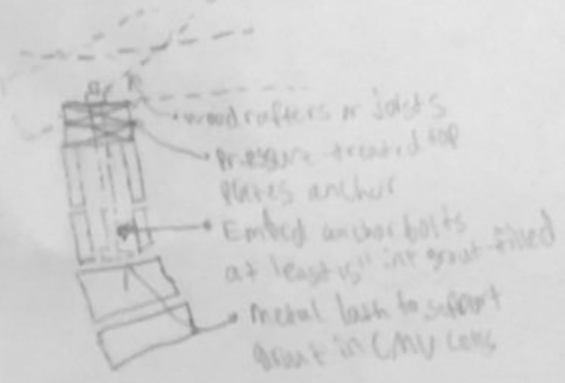 wood rafters or joists
Pressure-treated top
plates anchor
Embed anchor bolts
at least 15" int grout-filled
metal lath to support
grout in CMU cells